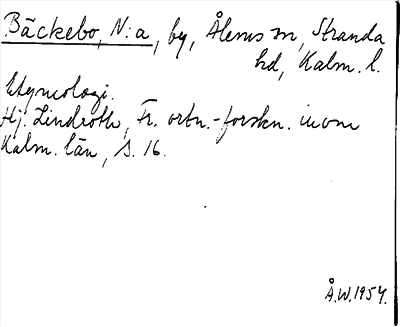 Bäckebo, N:a, by, Ålems sn, Stranda
hd, Kalm. l.
Etymologi.
Hj. Lindroth, Fr. ortn.-forskn. inom
Kalm. län, s. 16.
Å.W. 1954.